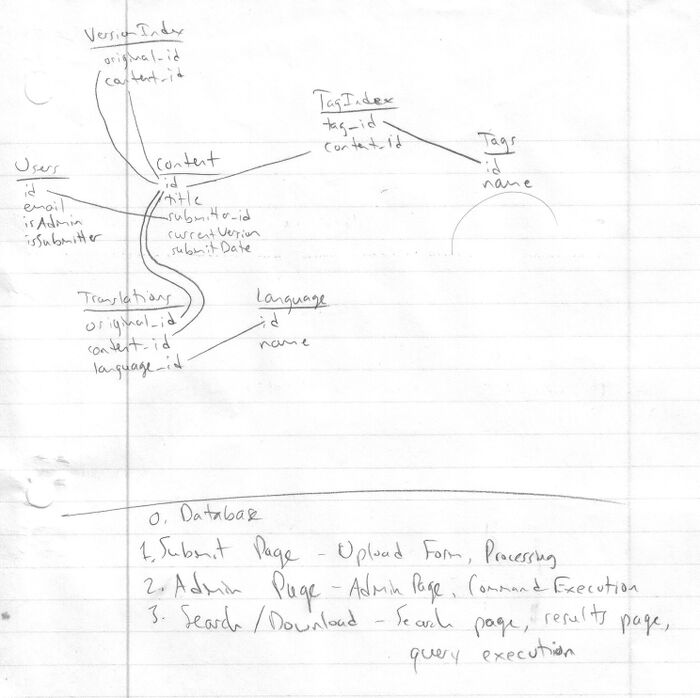 VersionIndex
original_id
content_id
TagIndex
tag_id
content_id
Tags
id
name
Users
id
email
isAdmin
isSubmitter
Content
id
title
submitter_id
currentVersion
submitDate
Translations
original_id
content_id
language_id
Language
id
name
0. Database
1. Submit Page - Upload Form, Processing
2. Admin Page - Admin Page, Command Execution
3. Search/Download - Search page, results page,
query execution